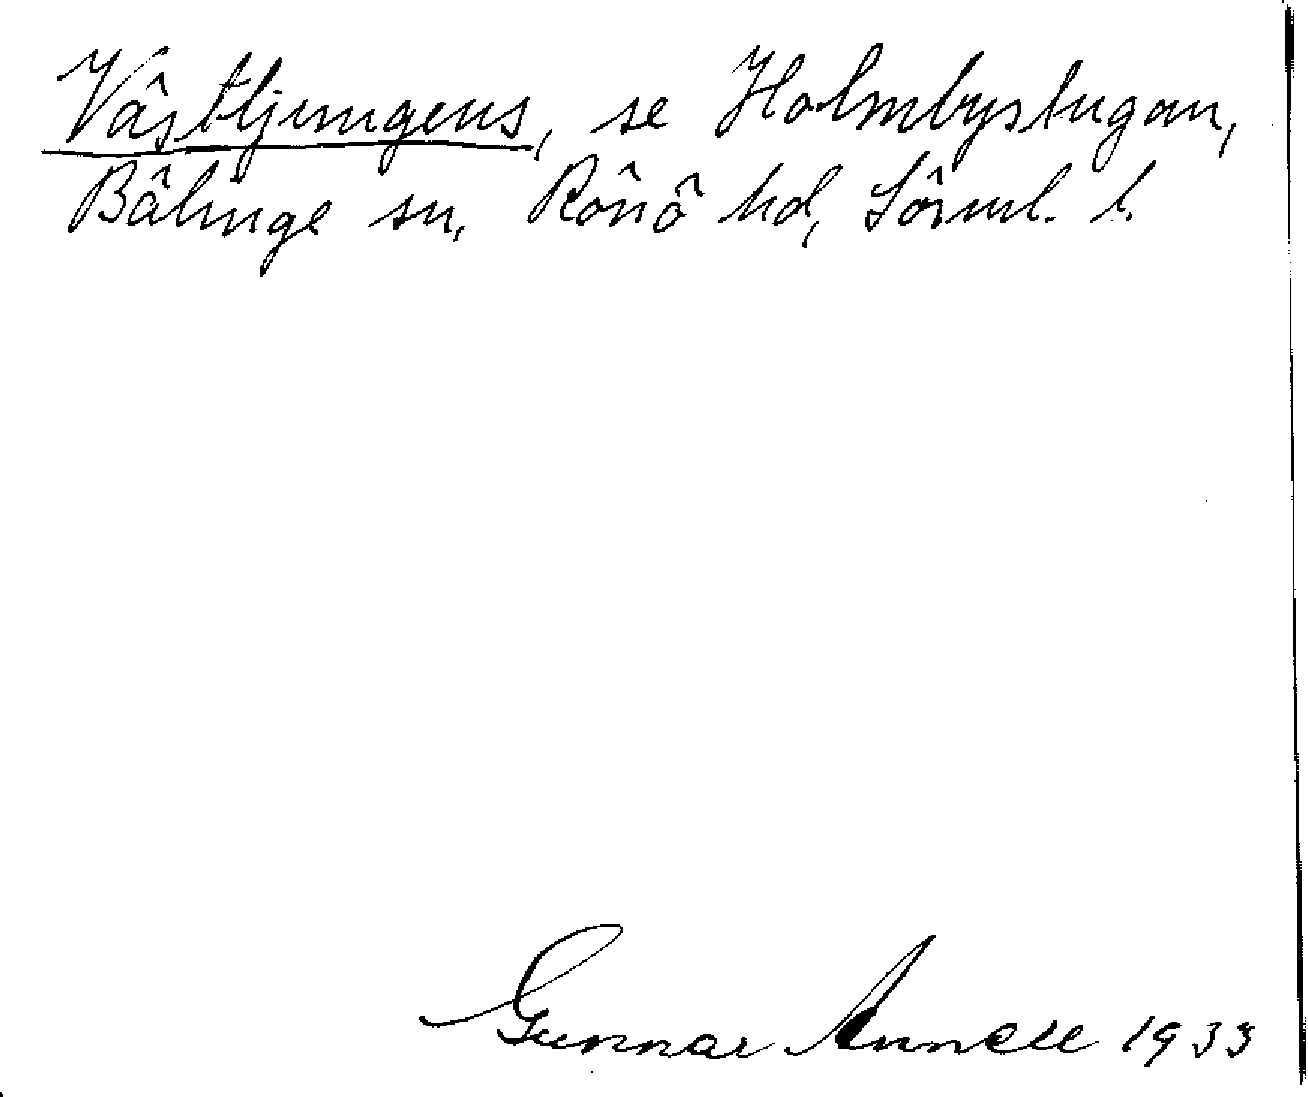 Västljungens, se Holmbystugan,
Bälinge sn, Rönö hd, Sörml. l.
Gunnar Annell 1933